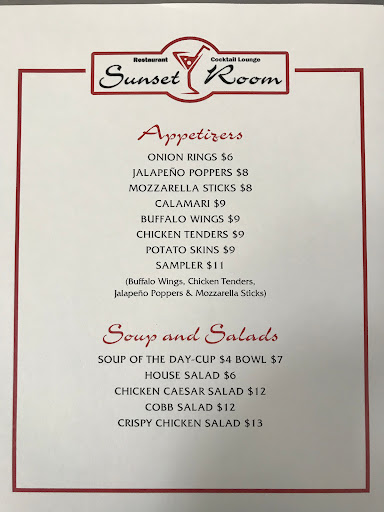 Restaurant Cocktail Lounge
Sunset Room
Appetizers
ONION RINGS $6
JALAPEÑO POPPERS $8
MOZZARELLA STICKS $8
CALAMARI $9
BUFFALO WINGS $9
CHICKEN TENDERS $9
POTATO SKINS $9
SAMPLER $11
(Buffalo Wings, Chicken Tenders,
Jalapeño Poppers & Mozzarella Sticks)
Soup and Salads
SOUP OF THE DAY-CUP $4 BOWL $7
HOUSE SALAD $6
CHICKEN CAESAR SALAD $12
COBB SALAD $12
CRISPY CHICKEN SALAD $13